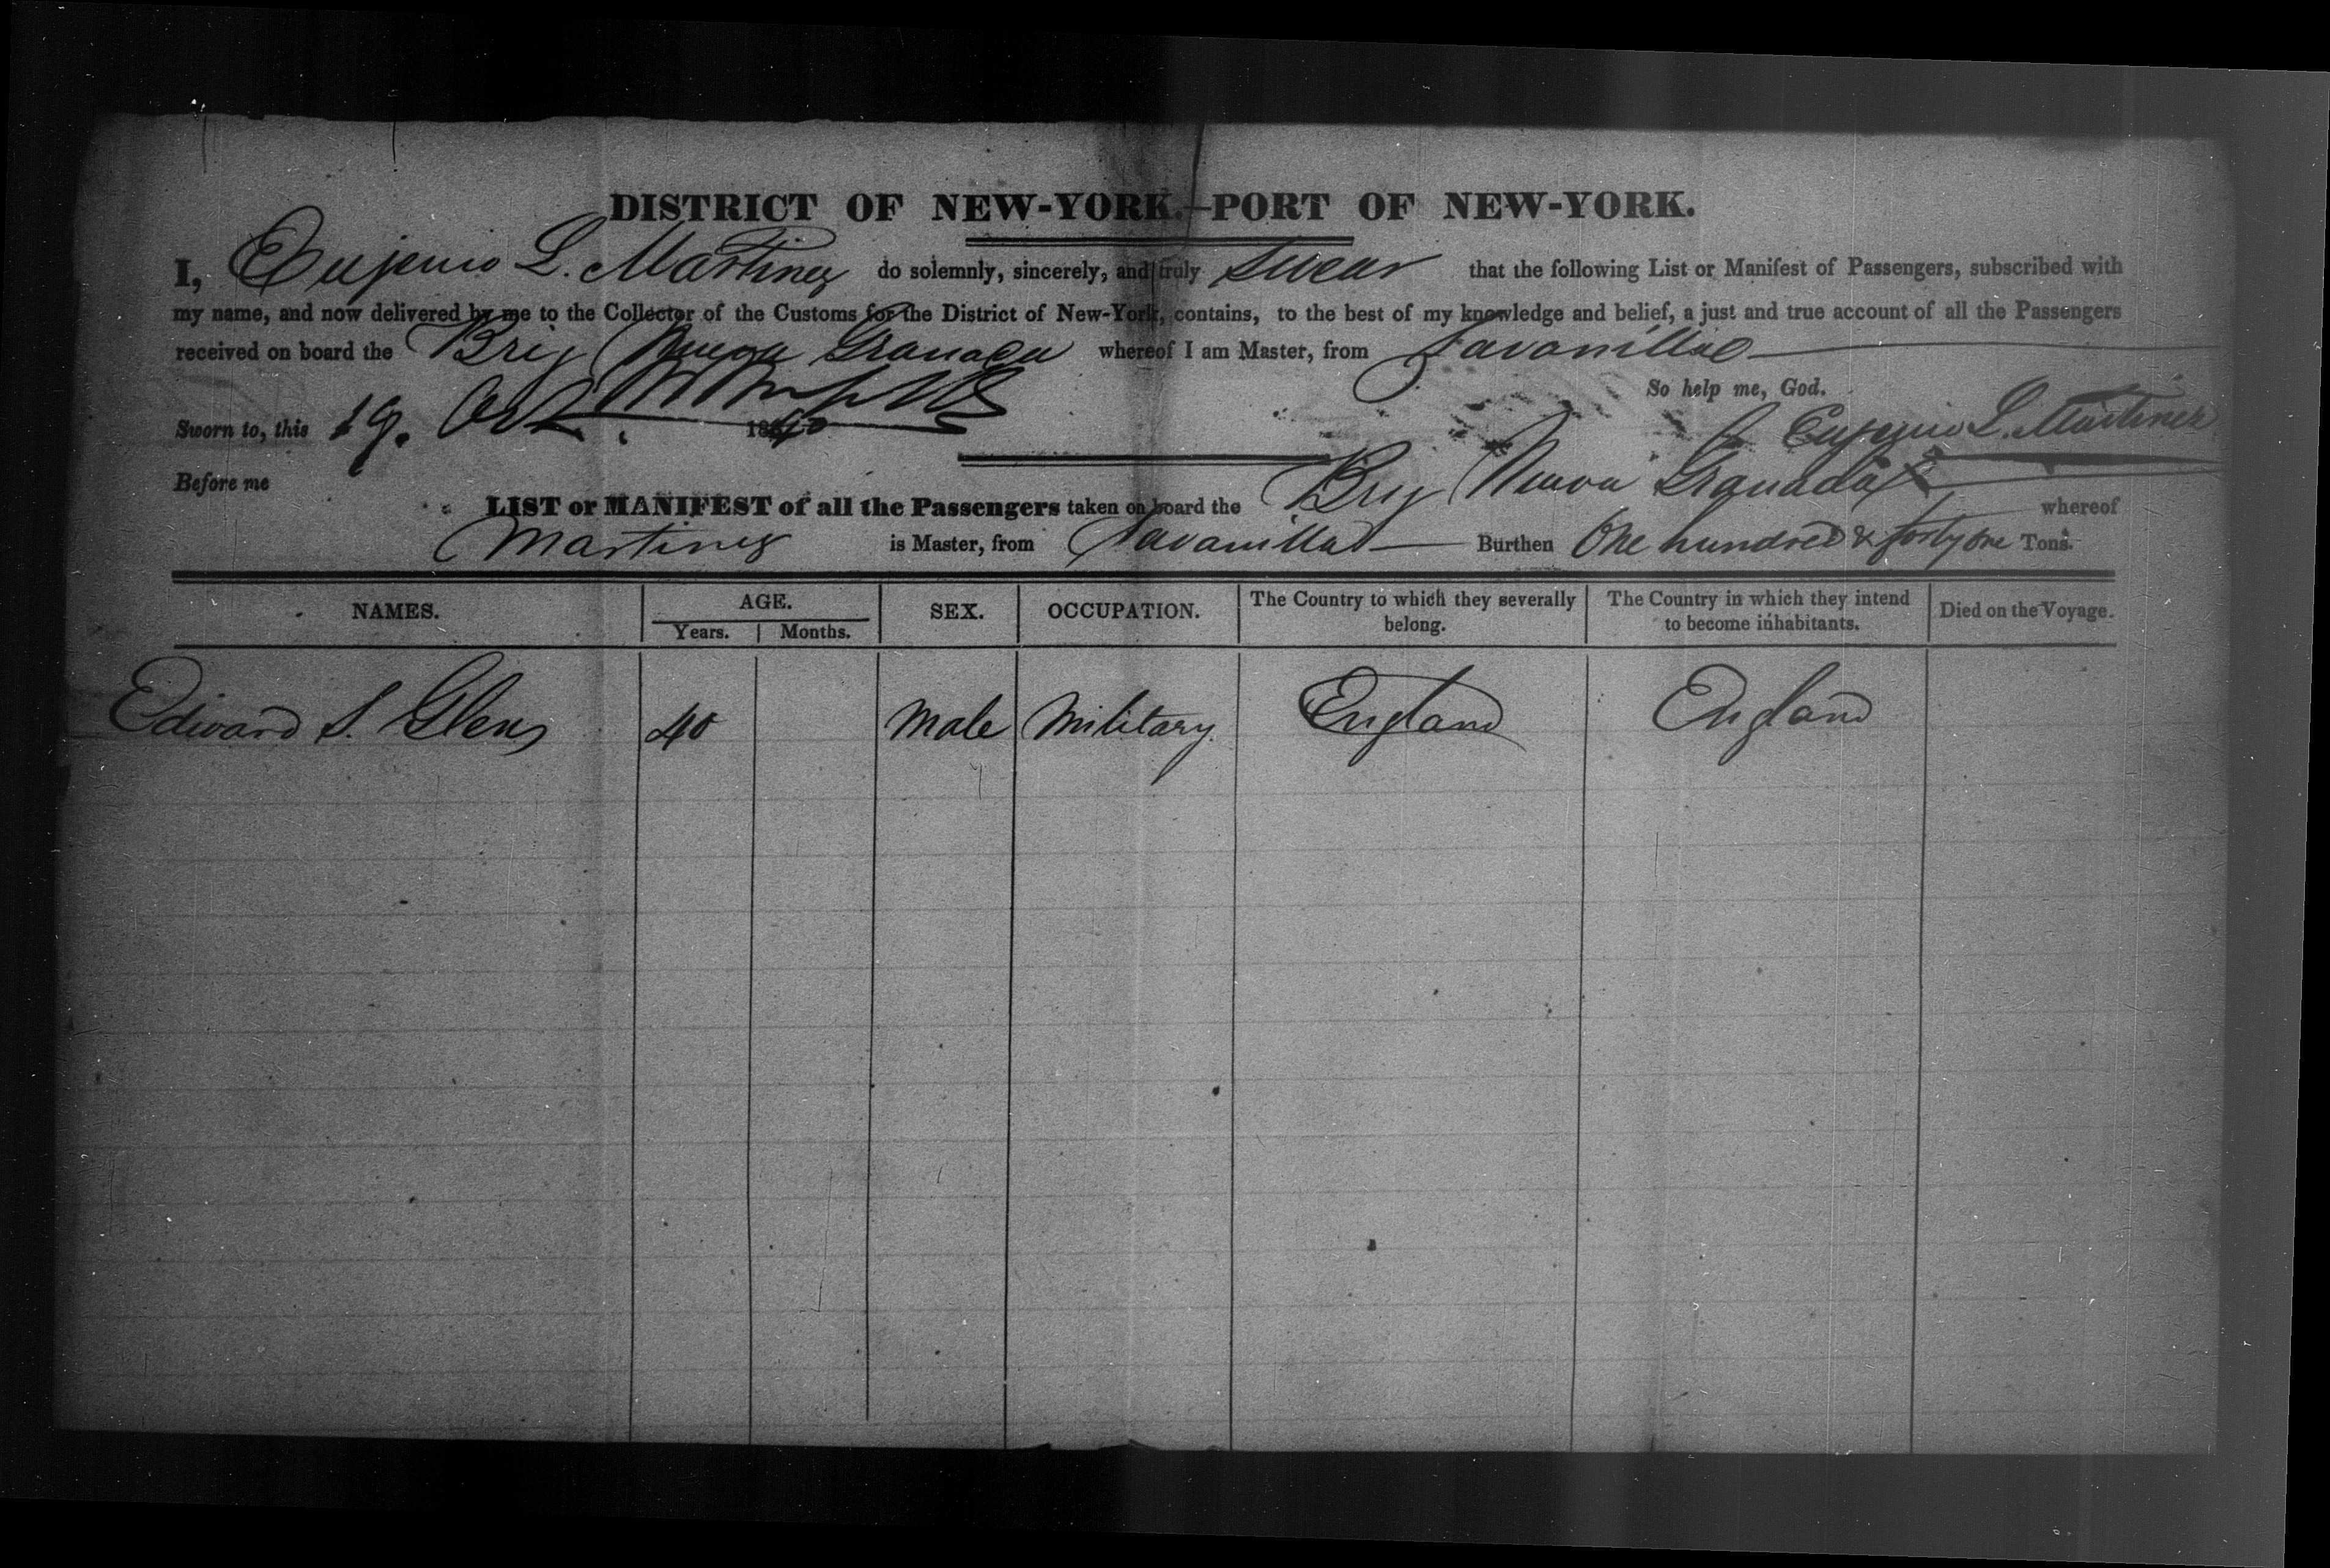 DISTRICT OF NEW-YORK.—PORT OF NEW-YORK.
I, Eugenio L. Martinez do solemnly, sincerely, and truly swear that the following List or Manifest of Passengers, subscribed with
my name, and now delivered by me to the Collector of the Customs for the District of New-York, contains, to the best of my knowledge and belief, a just and true account of all the Passengers
received on board the Brig Nueva Granada whereof I am Master, from Savanilla
So help me, God.
Sworn to, this 19. Oct. 1840 Eugenio L. Martinez
Before me
LIST or MANIFEST of all the Passengers taken on board the Brig Nueva Granada whereof
Martinez is Master, from Savanilla Burthen One hundred & forty one Tons.
NAMES. AGE. Years. Months. SEX. OCCUPATION. The Country to which they severally belong. The Country in which they intend to become inhabitants. Died on the Voyage.
Edward S. 40 Male Military England England